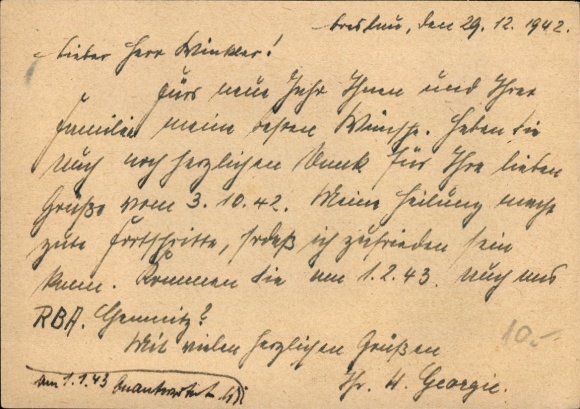 Breslau, den 29.12.1942.
Lieber Herr Winkler!
Fürs neue Jahr Ihnen und Ihrer
Familie meine besten Wünsche. Haben Sie
auch noch herzlichen Dank für Ihre lieben
Grüße vom 3.10.42. Meine Heilung macht
gute Fortschritte, sodaß ich zufrieden sein
kann. Kommen Sie am 1.2.43. auch ans
RBA. Chemnitz?
Mit vielen herzlichen Grüßen
Ihr H. Georgie.
am 1.1.43 beantwortet
10.-